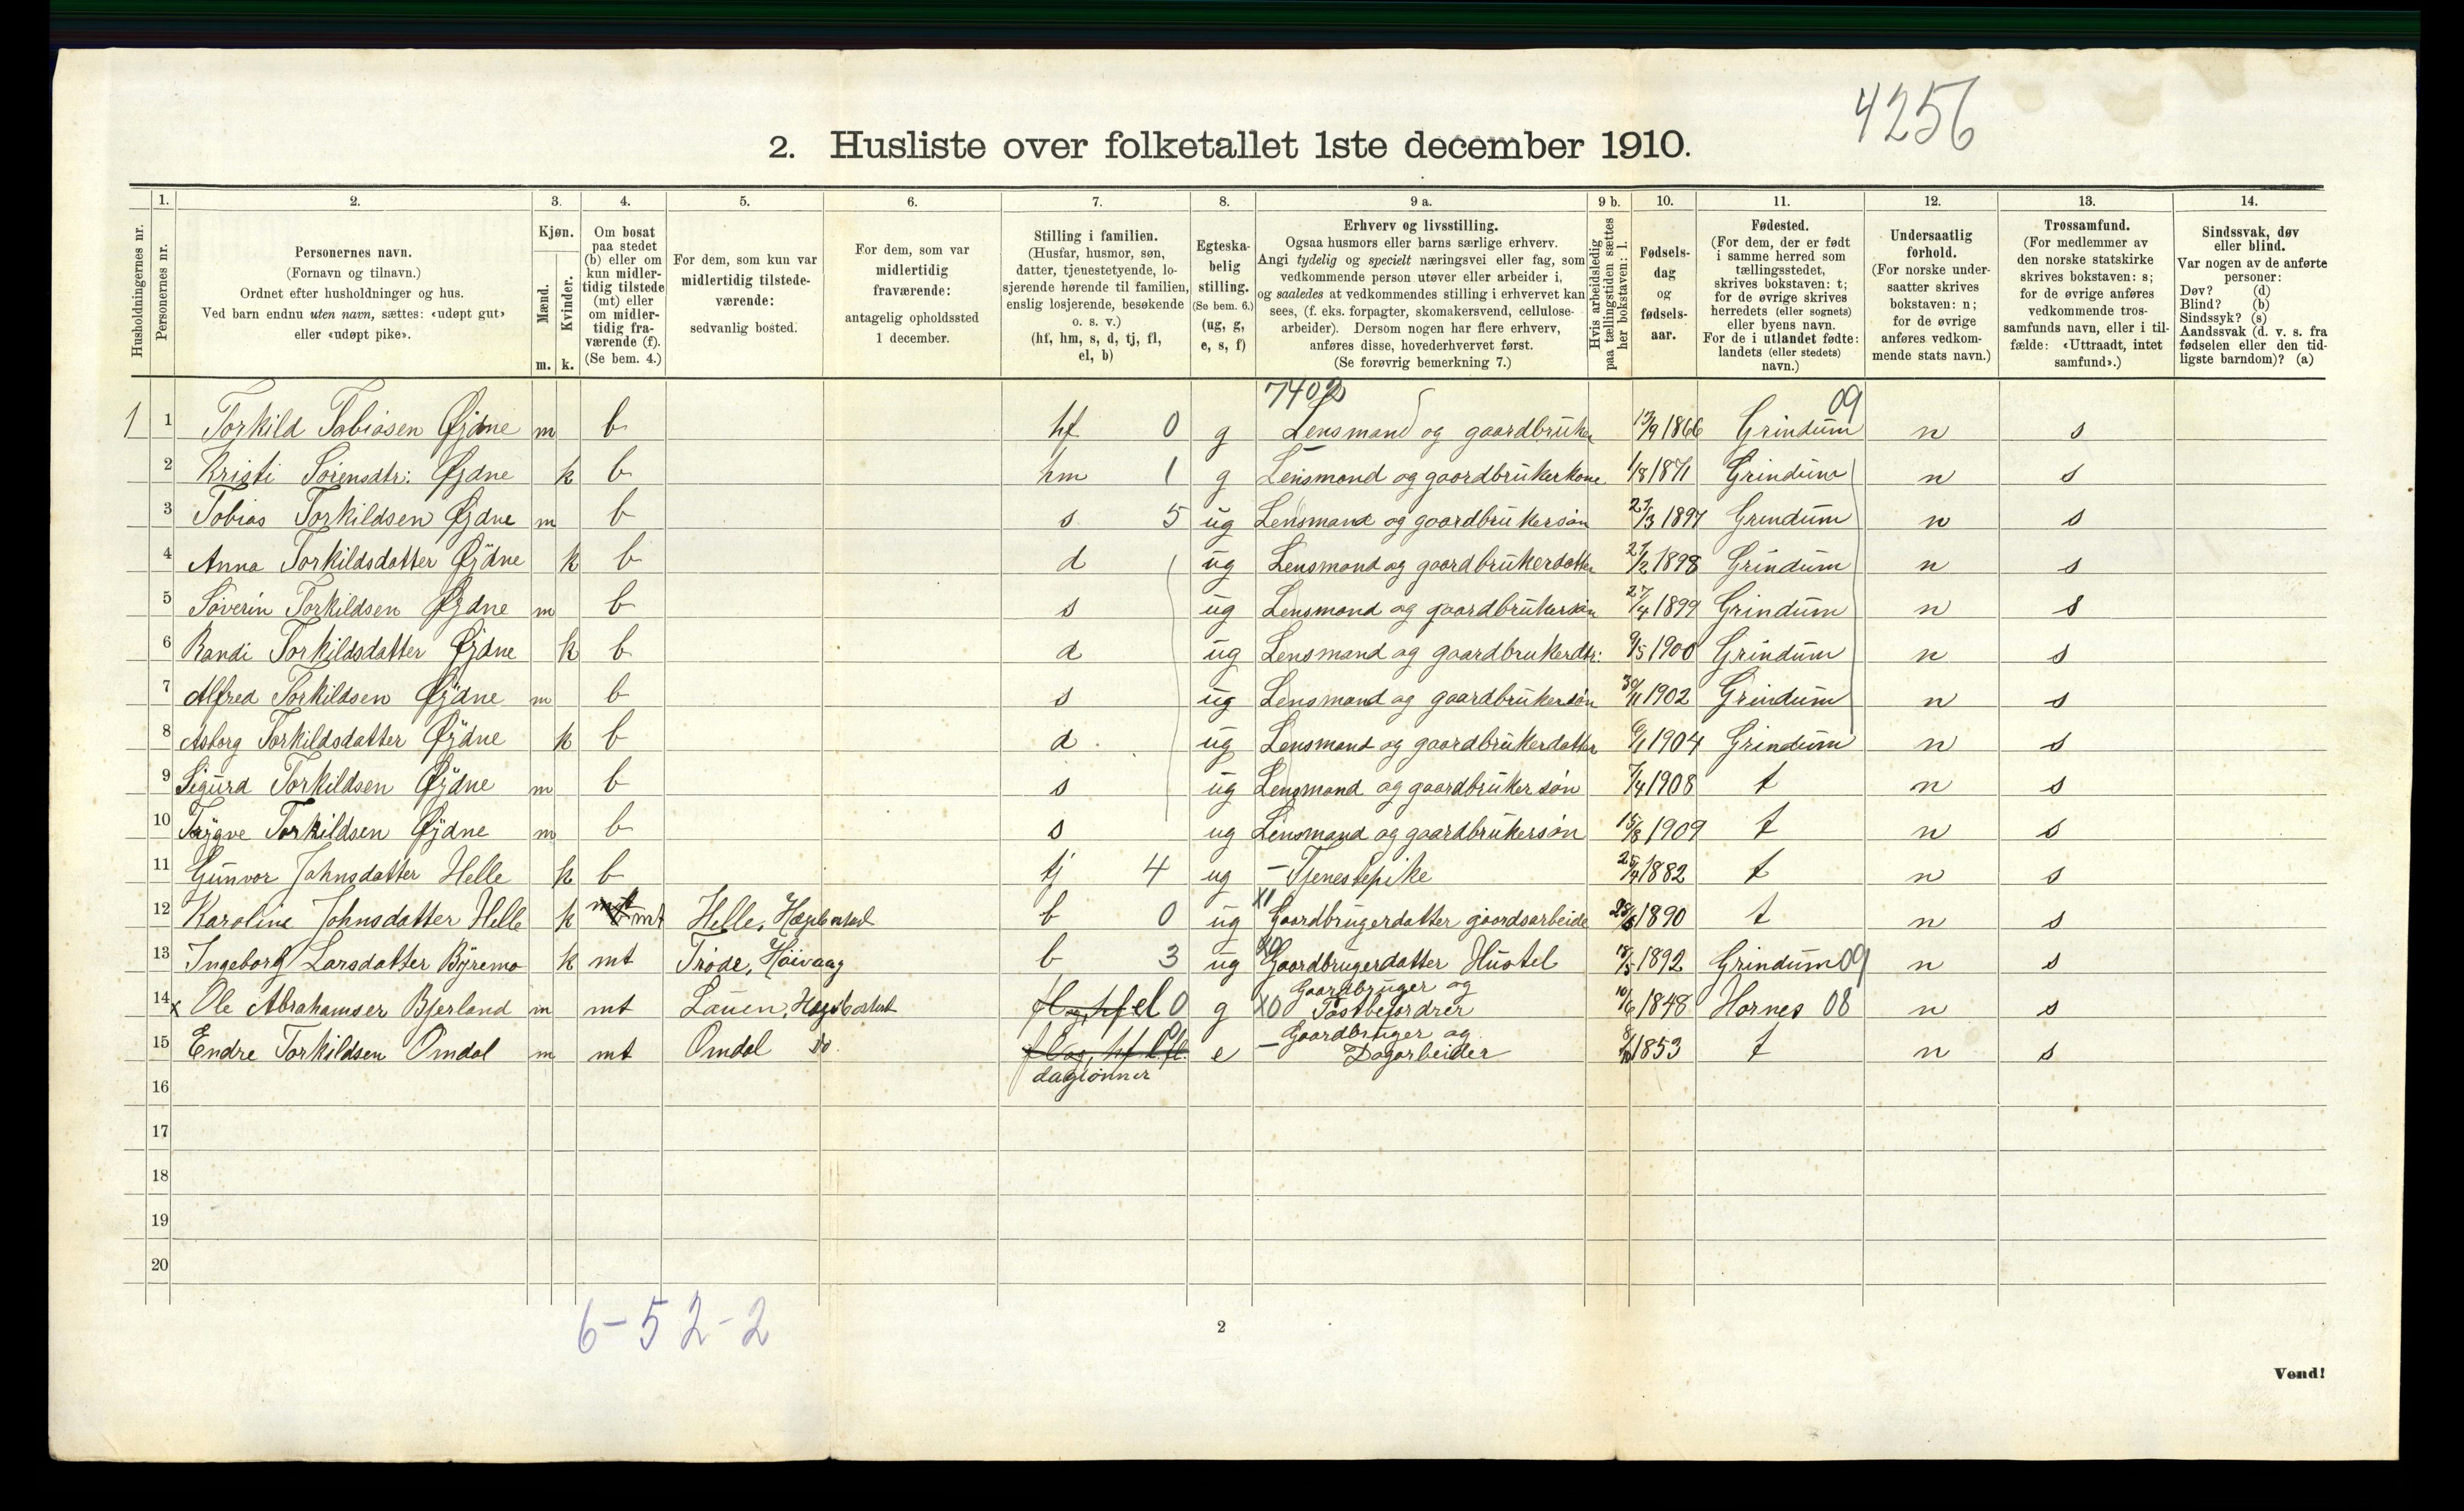 4256
2. Husliste over folketallet 1ste december 1910.
1. 2. 3. 4. 5. 6. 7. 8. 9 a. 9 b. 10. 11. 12. 13. 14.
Husholdningernes nr.
Personernes nr.
Personernes navn.
(Fornavn og tilnavn.)
Ordnet efter husholdninger og hus.
Ved barn endnu uten navn, sættes: «udøpt gut»
eller «udøpt pike».
Kjøn.
Mænd.
Kvinder.
m. k.
Om bosat
paa stedet
(b) eller om
kun midler-
tidig tilstede
(mt) eller
om midler-
tidig fra-
værende (f).
(Se bem. 4.)
For dem, som kun var
midlertidig tilstede-
værende:
sedvanlig bosted.
For dem, som var
midlertidig
fraværende:
antagelig opholdssted
1 december.
Stilling i familien.
(Husfar, husmor, søn,
datter, tjenestetyende, lo-
sjerende hørende til familien,
enslig losjerende, besøkende
o. s. v.)
(hf, hm, s, d, tj, fl,
el, b)
Egteska-
belig
stilling.
(Se bem. 6.)
(ug, g,
e, s, f)
Erhverv og livsstilling.
Ogsaa husmors eller barns særlige erhverv.
Angi tydelig og specielt næringsvei eller fag, som
vedkommende person utøver eller arbeider i,
og saaledes at vedkommendes stilling i erhvervet kan
sees, (f. eks. forpagter, skomakersvend, cellulose-
arbeider). Dersom nogen har flere erhverv,
anføres disse, hovederhvervet først.
(Se forøvrig bemerkning 7.)
Hvis arbeidsledig
paa tællingstiden sættes
her bokstaven: l.
Fødsels-
dag
og
fødsels-
aar.
Fødested.
(For dem, der er født
i samme herred som
tællingsstedet,
skrives bokstaven: t;
for de øvrige skrives
herredets (eller sognets)
eller byens navn.
For de i utlandet fødte:
landets (eller stedets)
navn.)
Undersaatlig
forhold.
(For norske under-
saatter skrives
bokstaven: n;
for de øvrige
anføres vedkom-
mende stats navn.)
Trossamfund.
(For medlemmer av
den norske statskirke
skrives bokstaven: s;
for de øvrige anføres
vedkommende tros-
samfunds navn, eller i til-
fælde: «Uttraadt, intet
samfund».)
Sindssvak, døv
eller blind.
Var nogen av de anførte
personer:
Døv? (d)
Blind? (b)
Sindssyk? (s)
Aandssvak (d. v. s. fra
fødselen eller den tid-
ligste barndom)? (a)
1 1 Torkild Tobiasen Øjdne m b hf 0 g Lensmand og gaardbruker 13/9 1866 Grindum 09 n s
2 Kristi Sørensdtr: Øjdne k b hm 1 g Lensmand og gaardbrukerkone 1/8 1871 Grindum n s
3 Tobias Torkildsen Øjdne m b s 5 ug Lensmand og gaardbrukersøn 27/3 1897 Grindum n s
4 Anna Torkildsdatter Øjdne k b d ug Lensmand og gaardbrukerdatter 27/2 1898 Grindum n s
5 Søverin Torkildsen Øjdne m b s ug Lensmand og gaardbrukersøn 27/4 1899 Grindum n s
6 Randi Torkildsdatter Øjdne k b d ug Lensmand og gaardbrukerdtr: 9/5 1900 Grindum n s
7 Alfred Torkildsen Øjdne m b s ug Lensmand og gaardbrukersøn 30/11 1902 Grindum n s
8 Asborg Torkildsdatter Øjdne k b d ug Lensmand og gaardbrukerdatter 6/1 1904 Grindum n s
9 Sigurd Torkildsen Øjdne m b s ug Lensmand og gaardbruker søn 7/4 1908 t n s
10 Trygve Torkildsen Øjdne m b s ug Lensmand og gaardbrukersøn 15/8 1909 t n s
11 Gunvor Johnsdatter Helle k b tj 4 ug - Tjenestepike 25/4 1882 t n s
12 Karoline Johnsdatter Helle k mt Helle, Hægebostad b 0 ug Gaardbrugerdatter gaardsarbeide 1890 t n s
13 Ingeborg Larsdatter Byremo k mt Trøde, Høivaag b 3 ug Gaardbrugerdatter Hustel 18/5 1892 Grindum 09 n s
14 x Ole Abrahamsen Bjerland m mt Lauen, Hægebostad el 0 g X0 Gaardbruger og
Postbefordrer 10/6 1848 Hornes 08 n s
15 Endre Torkildsen Omdal m mt Omdal do. fl e - Gaardbruger og
Dagarbeider 1853 t n s
daglønner
16
17
18
19
20
6-52-2
2
Vend!